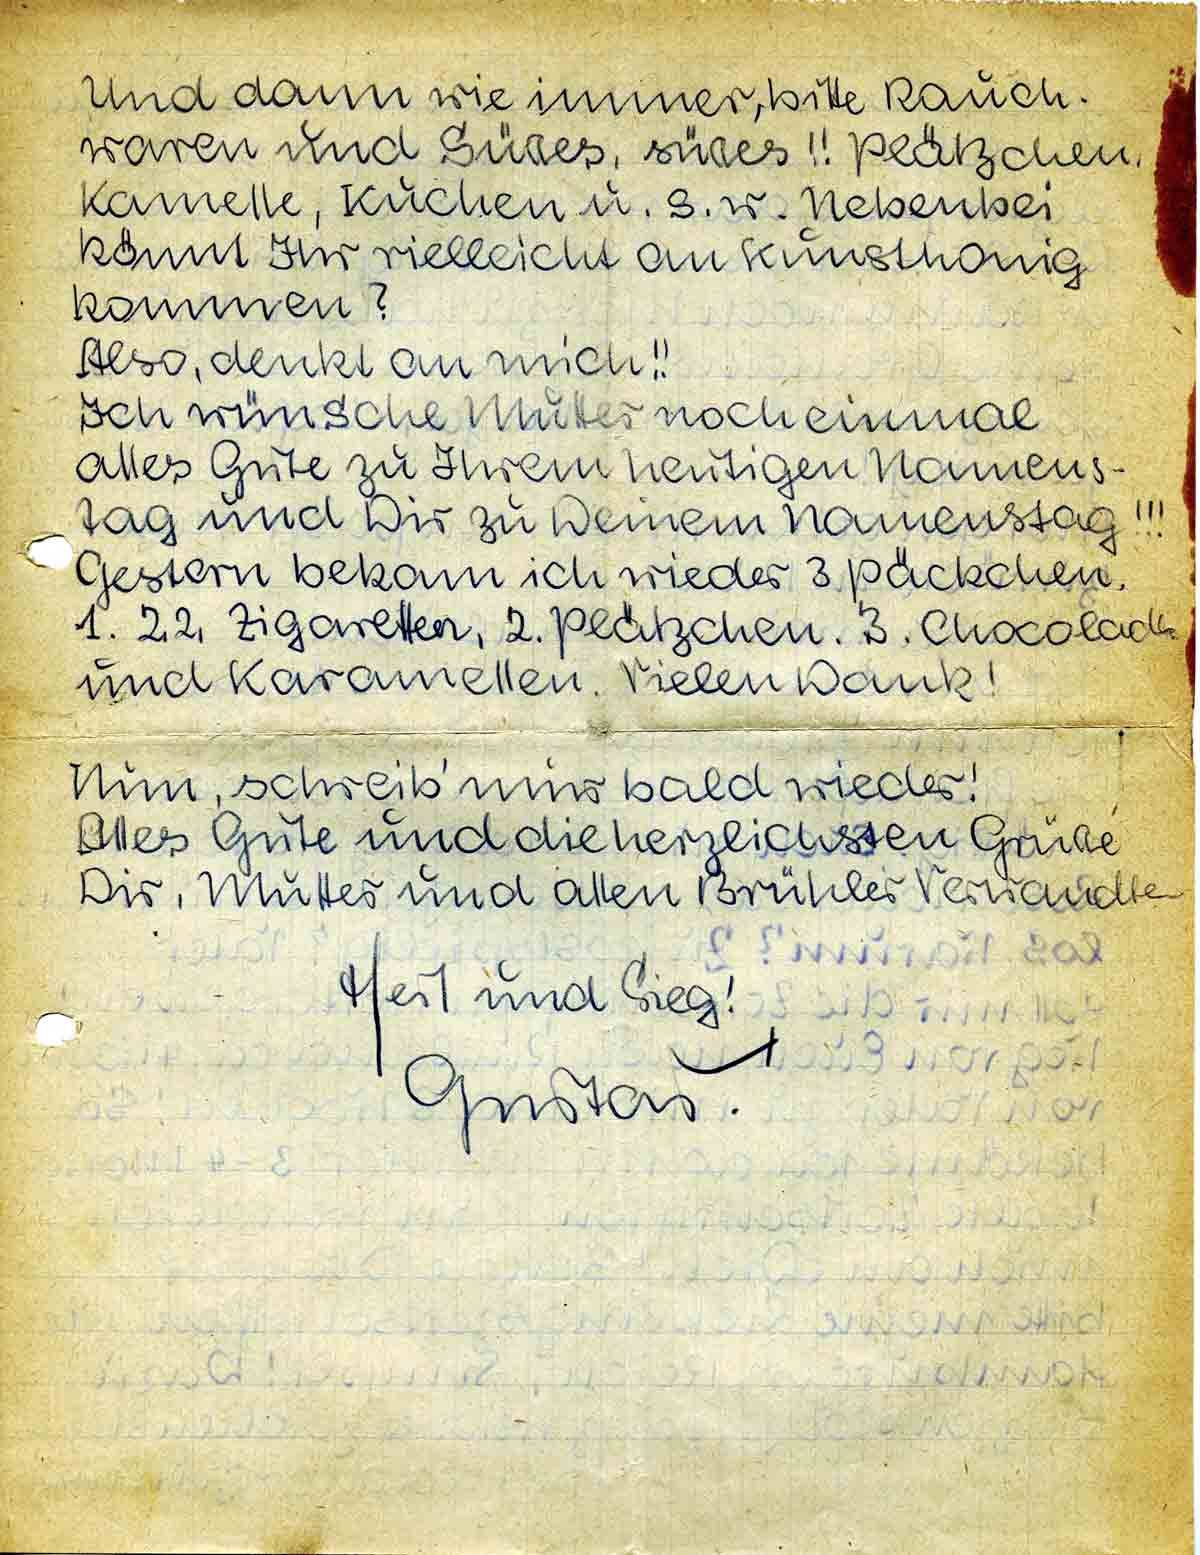 Und dann wie immer, bitte Rauch-
waren und Süßes, süßes!! Plätzchen,
Kamelle, Kuchen u. s. w. Nebenbei
könnt Ihr vielleicht an Kunsthonig
kommen?
Also, denkt an mich!!
Ich wünsche Mutter noch einmal
alles Gute zu Ihrem heutigen Namens-
tag und Dir zu Deinem Namenstag!!!
Gestern bekam ich wieder 3 Päckchen.
1. 22 Zigaretten, 2. Plätzchen. 3. Chocolade
und Karamellen. Vielen Dank!
Nun, schreib' mir bald wieder!
Alles Gute und die herzlichsten Grüße
Dir, Mutter und allen Brühler Verwandten
Heil und Sieg!
Gustav.